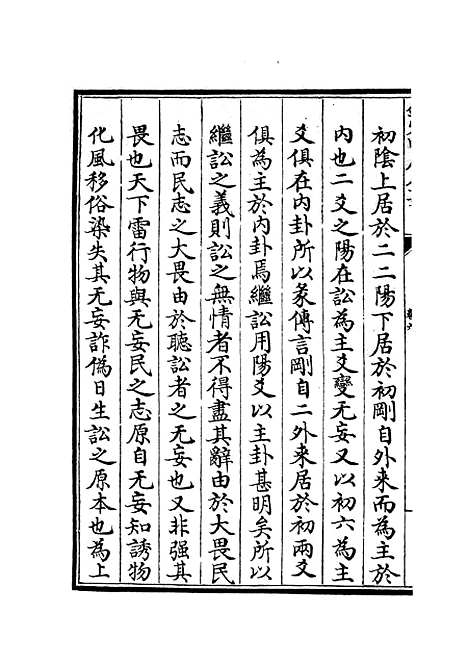 初陰上居於二二陽下居於初剛自外来而為主於
内也二爻之陽在訟為主爻變无妄又以初六為主
爻俱在内卦所以彖傳言剛自二外来居於初兩爻
俱為主於内卦焉繼訟用陽爻以主卦甚明矣所以
繼訟之義則訟之無情者不得盡其辭由於大畏民
志而民志之大畏由於聽訟者之无妄也又非强其
畏也天下雷行物與无妄民之志原自无妄知誘物
化風移俗染失其无妄詐偽日生訟之原本也為上